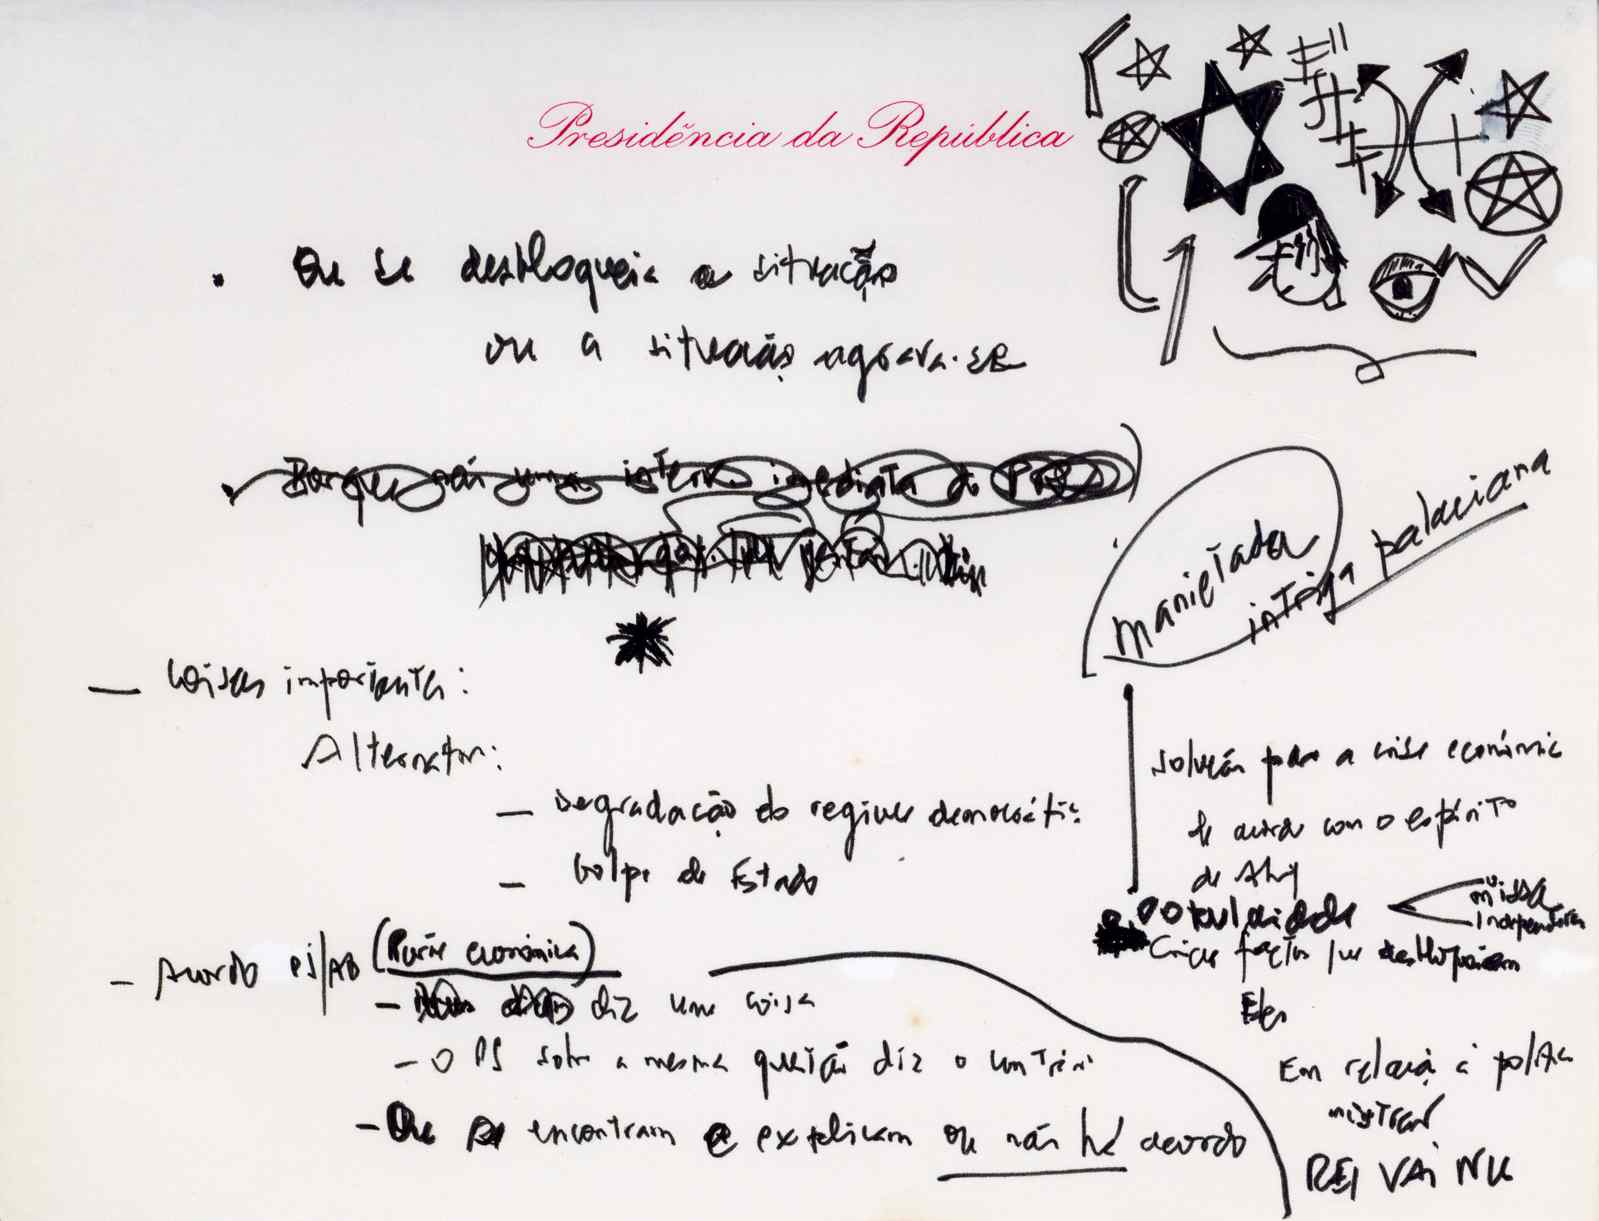 Presidência da República
. Ou se desbloqueia a situação
ou a situação agrava-se
Porque não uma interv. imediata do
— Coisas importantes:
Alternativ:
— Degradação do regime democráti.
— Golpe de Estado
— Acordo PS/AD (Parte económica)
— diz uma coisa
— O PS sobre a mesma questão diz o contrári
— Ou se encontram e explicam ou não há acordo
manietada
intriga palaciana
solução para a crise económic
de acordo com o espírito
de
missa
independentes
Criar factos que desbloqueiem
Eles
Em relação à polítca
REI VAI NU